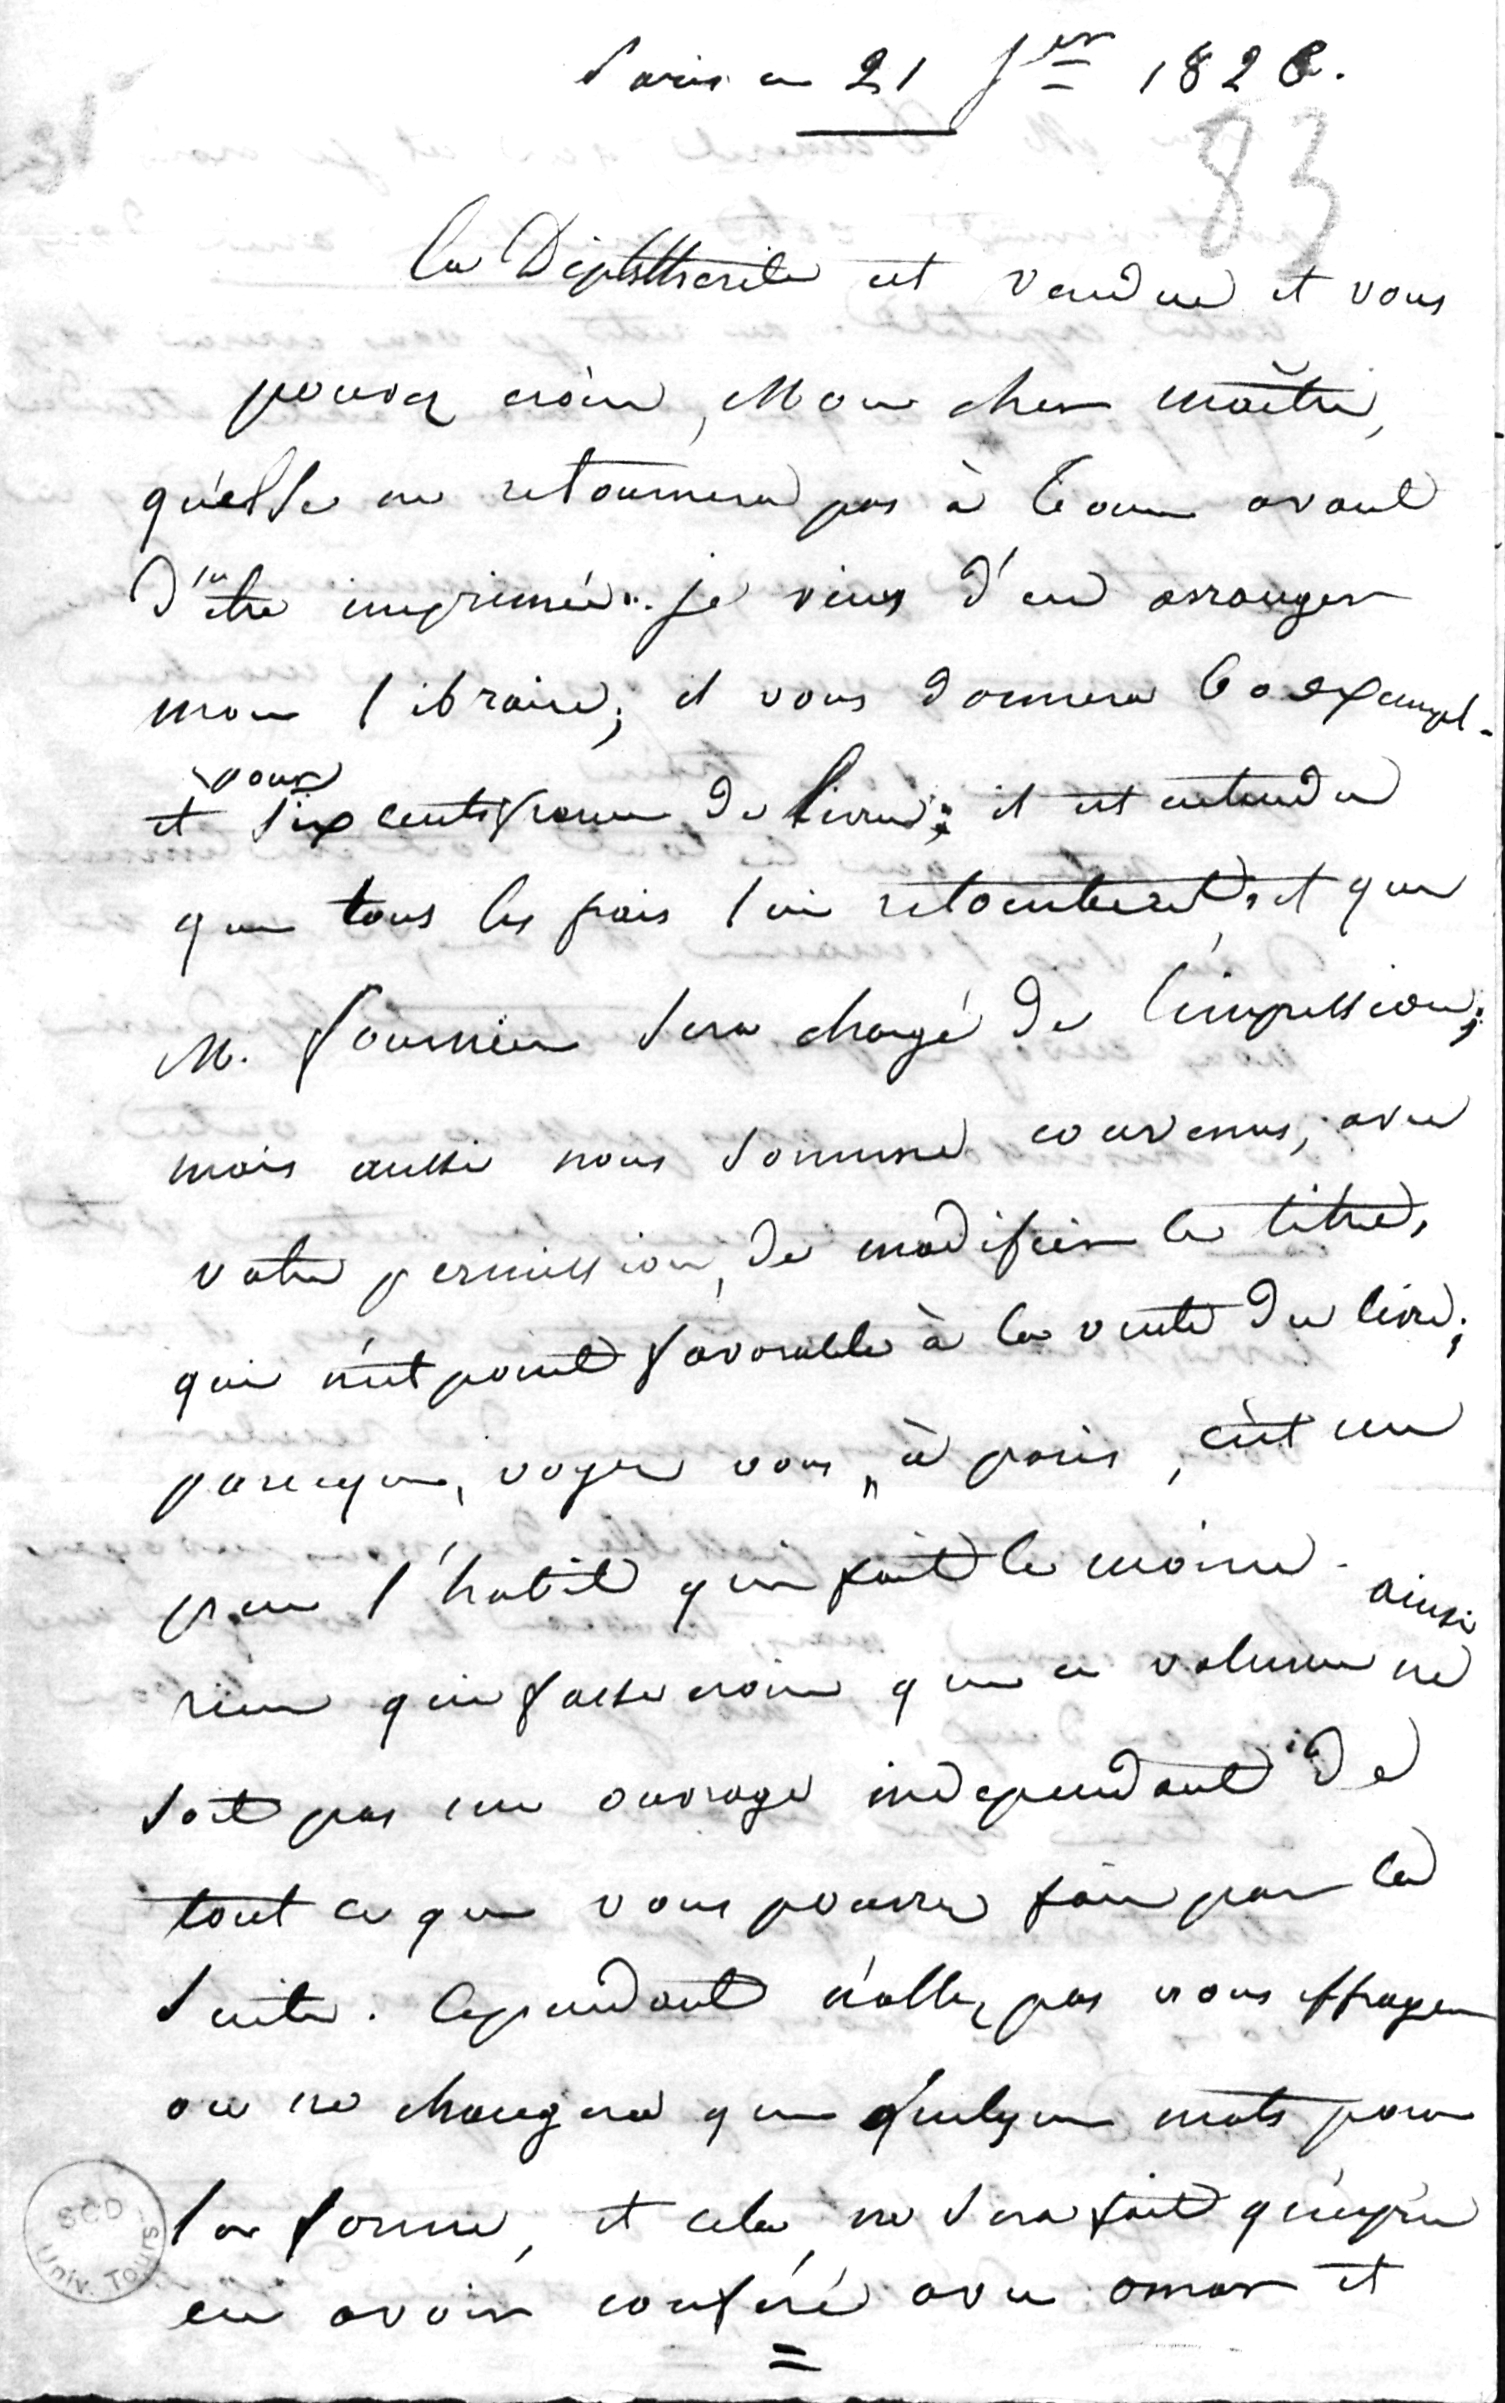 Paris ce 21 Jer 1826.
83
La Diphtherite est vendue et vous
pouvez croire, Mon cher maître,
qu'elle ne retournera pas à Tours avant
d'être imprimée. je viens d'en arranger
mon libraire; il vous donnera 60 exempl.
et pour six cents francs de livres; il est entendu
que tous les frais lui retombent, et que
M. fournier sera chargé de l'impression;
mais aussi nous sommes convenus, avec
votre permission, de modifier le titre,
qui n'est point favorable à la vente du livre;
parceque, voyez vous, à paris, c'est un
peu l'habit qui fait le moine. ainsi
rien qui fasse croire que ce volume ne
soit pas un ouvrage independant de
tout ce que vous pourrez faire par la
suite. Cependant n'allez pas vous effrayer
on ne changera que quelques mots pour
la forme, et cela ne sera fait qu'après
en avoir conféré avec omar et
SCD
Univ. Tours